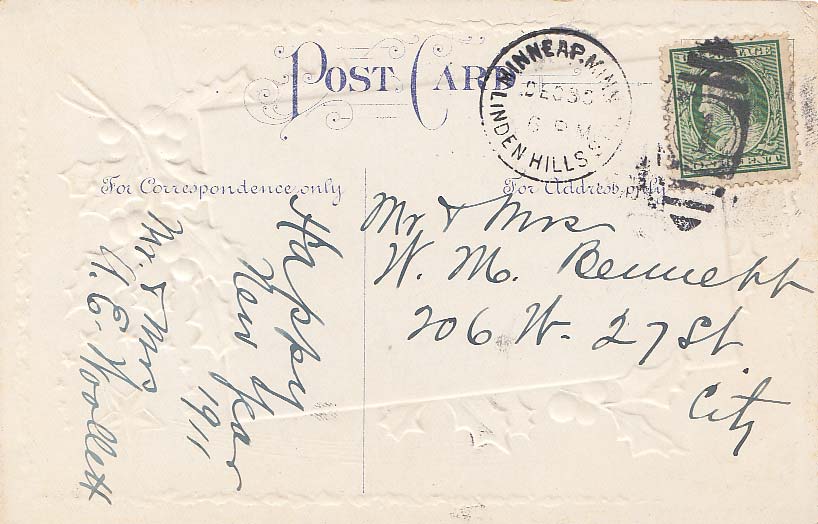 POST CARD
MINNEAP. MINN.
DEC 3
6 PM
LINDEN HILLS
For Correspondence only
For Address only
Happy
New Year
1911
Mr. & Mrs
Woollett
Mr & Mrs
W. M. Bennett
206 W. 27 St
City
CENT